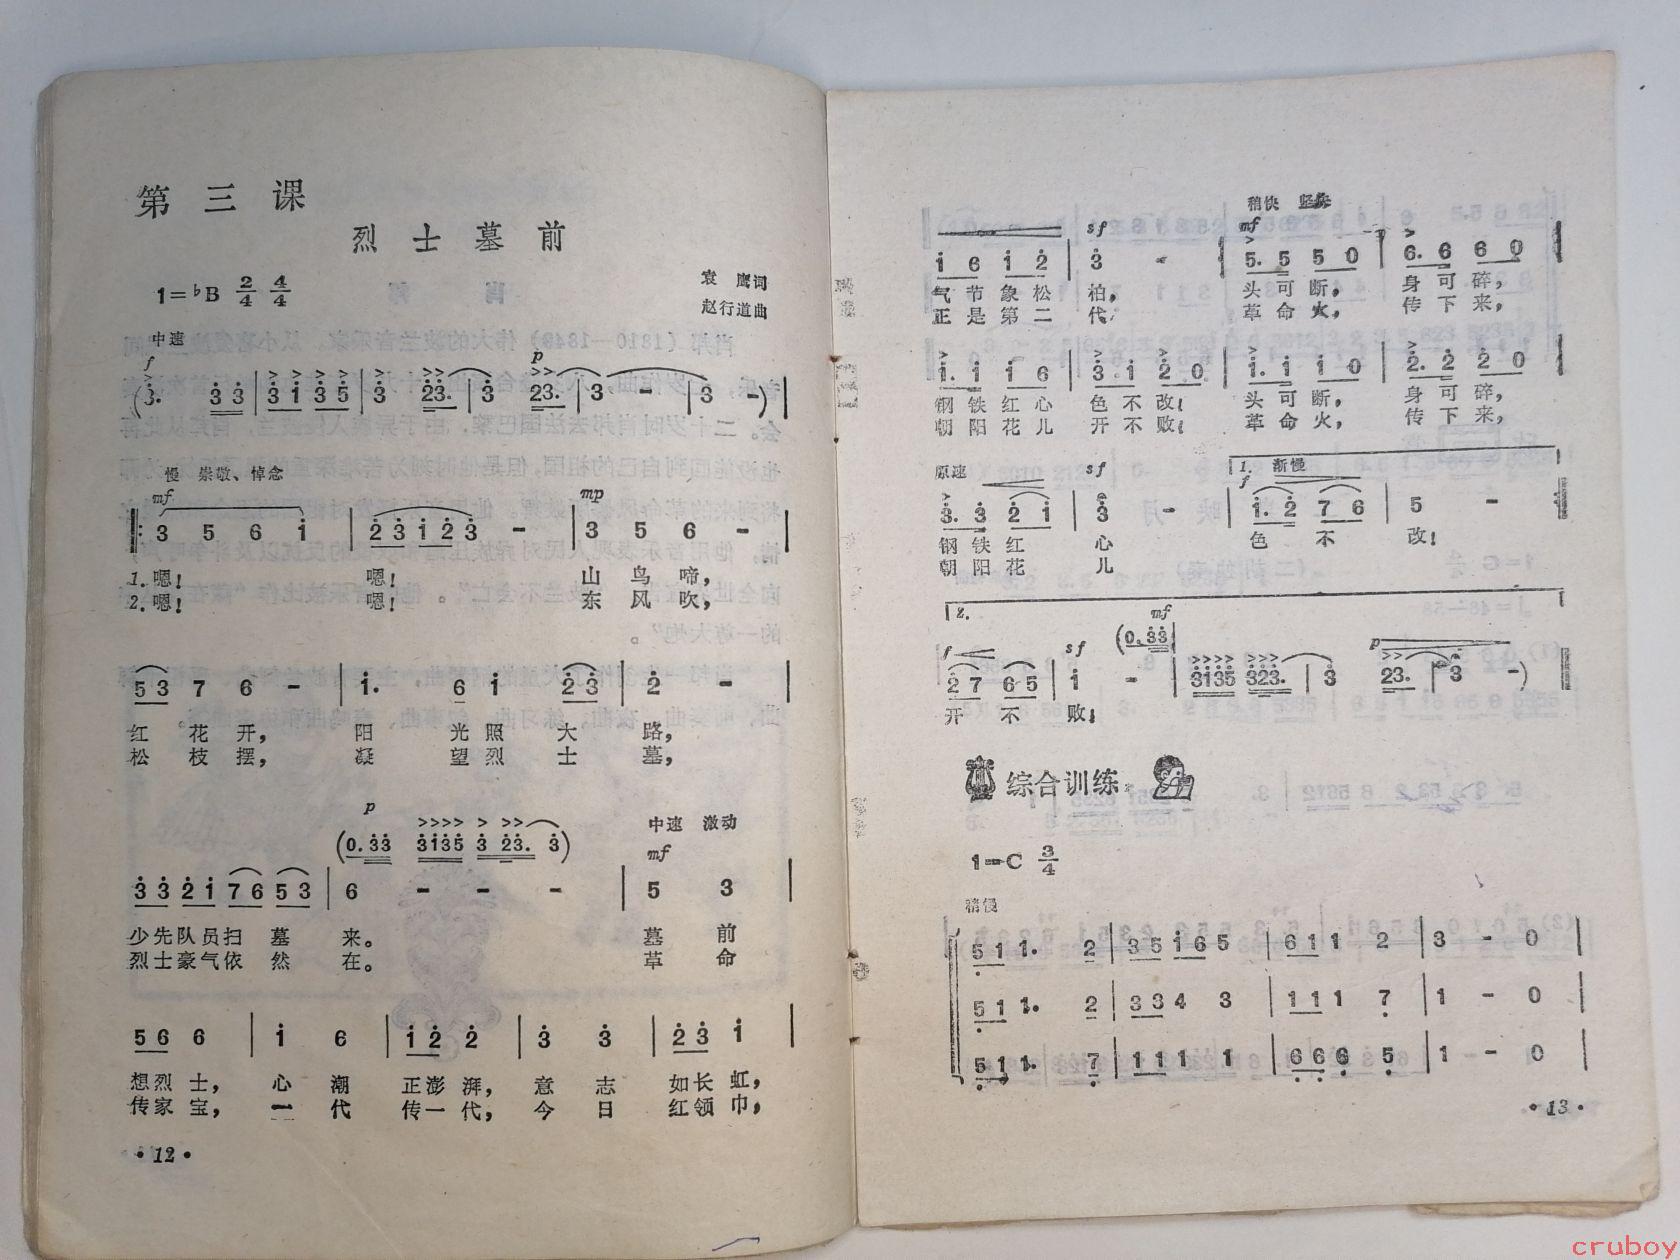 第三课
烈士墓前
1=♭B 2/4 4/4
袁鹰词
赵行道曲
中速
f p
(3. 33 | 31 35 | 3 23. | 3 23. | 3 - | 3 -) |
慢 崇敬、悼念
mf mp
‖: 3 5 6 i | 2312 3 - | 3 5 6 - |
1.嗯! 嗯! 山鸟啼,
2.嗯! 嗯! 东风吹,
53 7 6 - | i. 6 i 23 | 2 - |
红花开, 阳光照大路,
松枝摆, 凝望烈士墓,
p
(0.33 3135 3 23. 3)
中速 激动
mf
33 21 76 53 | 6 - - - | 5 3 |
少先队员扫墓来。 墓前
烈士豪气依然在。 革命
56 6 | i 6 | i2 2 | 3 3 | 23 i |
想烈士, 心潮正澎湃, 意志如长虹,
传家宝, 一代传一代, 今日红领巾,
·12·
稍快 坚决
sf mf
i6 i2 | 3 - | 5. 5 5 0 | 6. 6 6 0 |
气节象松柏, 头可断, 身可碎,
正是第二代, 革命火, 传下来,
i. i i 6 | 3. i 2 0 | i. i i 0 | 2. 2 2 0 |
钢铁红心色不改! 头可断, 身可碎,
朝阳花儿开不败! 革命火, 传下来,
原速 sf 1. 渐慢
f
3. 3 2 i | 3 - | i. 2 76 | 5 - :‖
钢铁红心 色不改!
朝阳花儿
2.
mf
(0.33
f sf p
27 65 | i - | 3135 323. | 3 23. | 3 -) ‖
开不败!
综合训练
1=C 3/4
稍慢
51 1. 2 | 35 i6 5 | 61 1 2 | 3 - 0 |
51 1. 2 | 33 4 3 | 11 1 7 | 1 - 0 |
51 1. 7 | 11 1 1 | 66 6 5 | 1 - 0 |
·13·
cruboy